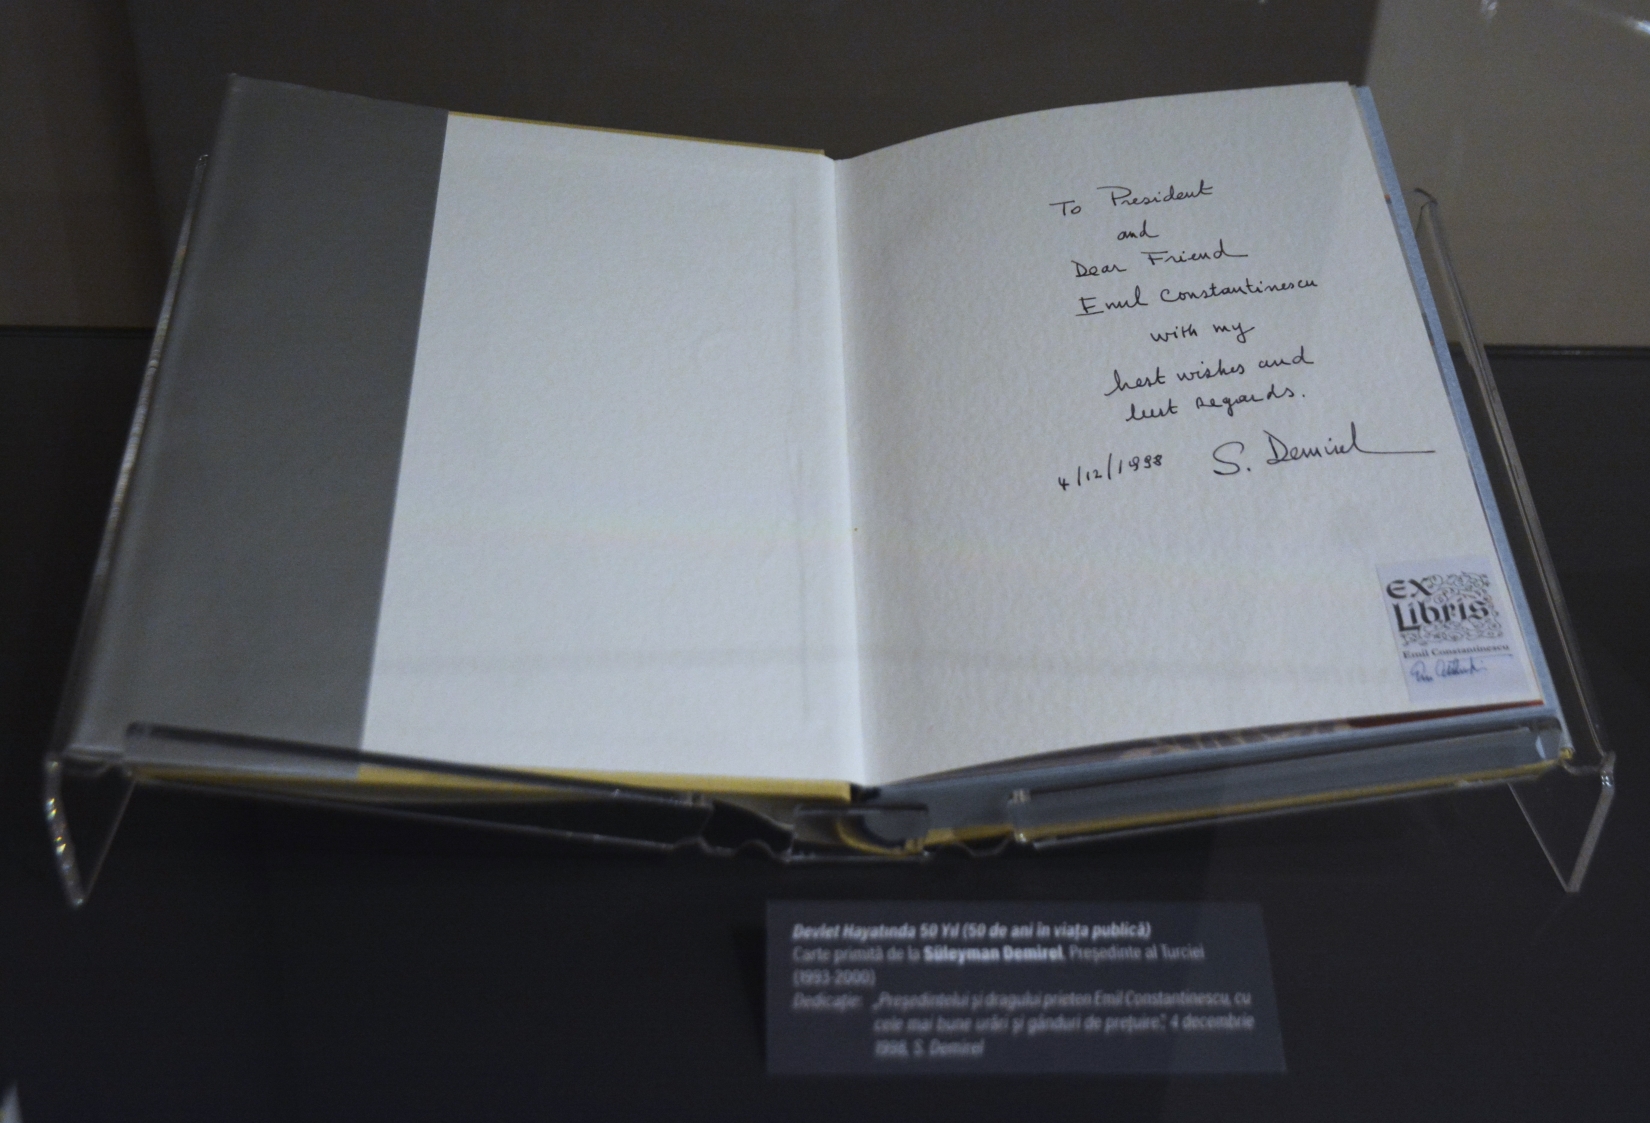 To President
and
Dear Friend
Emil Constantinescu
with my
best wishes and
best regards.
4/12/1998 S. Demirel
Ex
Libris
Emil Constantinescu
Devlet Hayatında 50 Yıl (50 de ani în viața publică)
Carte primită de la Süleyman Demirel, Președinte al Turciei
(1993-2000)
Dedicație: „Președintelui și dragului prieten Emil Constantinescu, cu
cele mai bune urări și gânduri de prețuire”, 4 decembrie
1998, S. Demirel